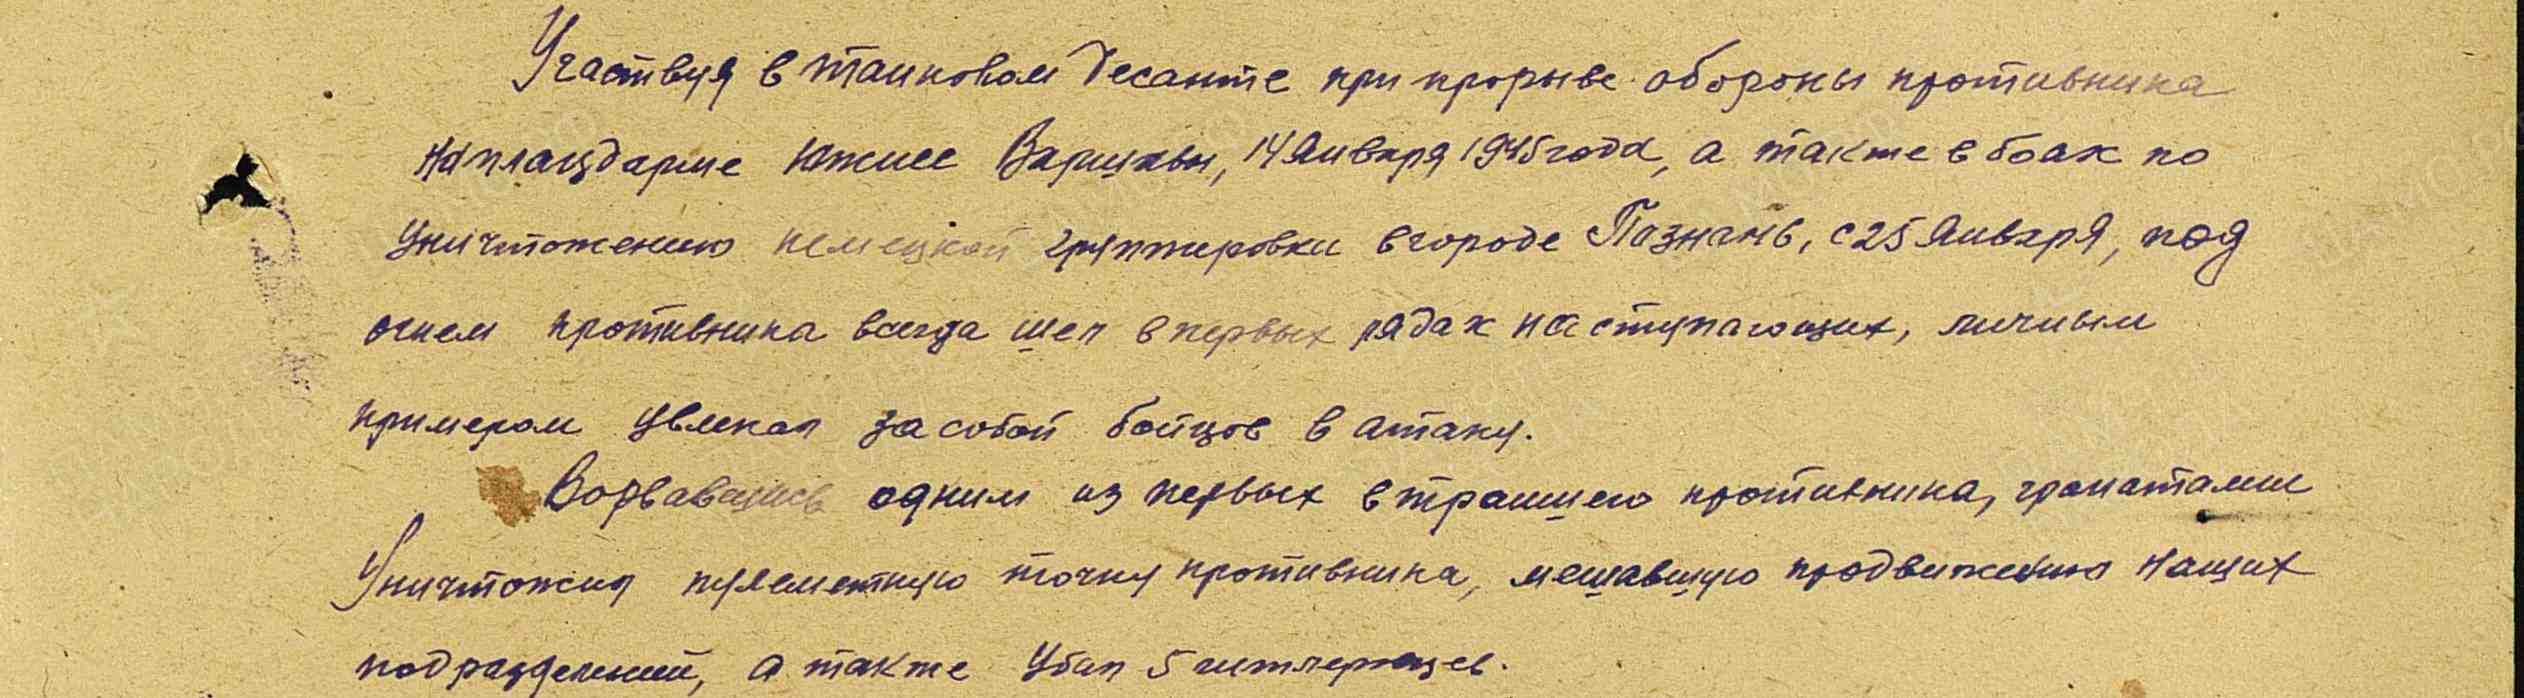 Участвуя в танковом десанте при прорыве обороны противника
на плацдарме южнее Варшавы, 14 января 1945 года, а также в боях по
уничтожению немецкой группировки в городе Познань, с 25 января, под
огнем противника всегда шел в первых рядах наступающих, личным
примером увлекал за собой бойцов в атаку.
Ворвавшись одним из первых в траншею противника, гранатами
уничтожил пулеметную точку противника, мешавшую продвижению наших
подразделений, а также убил 5 гитлеровцев.